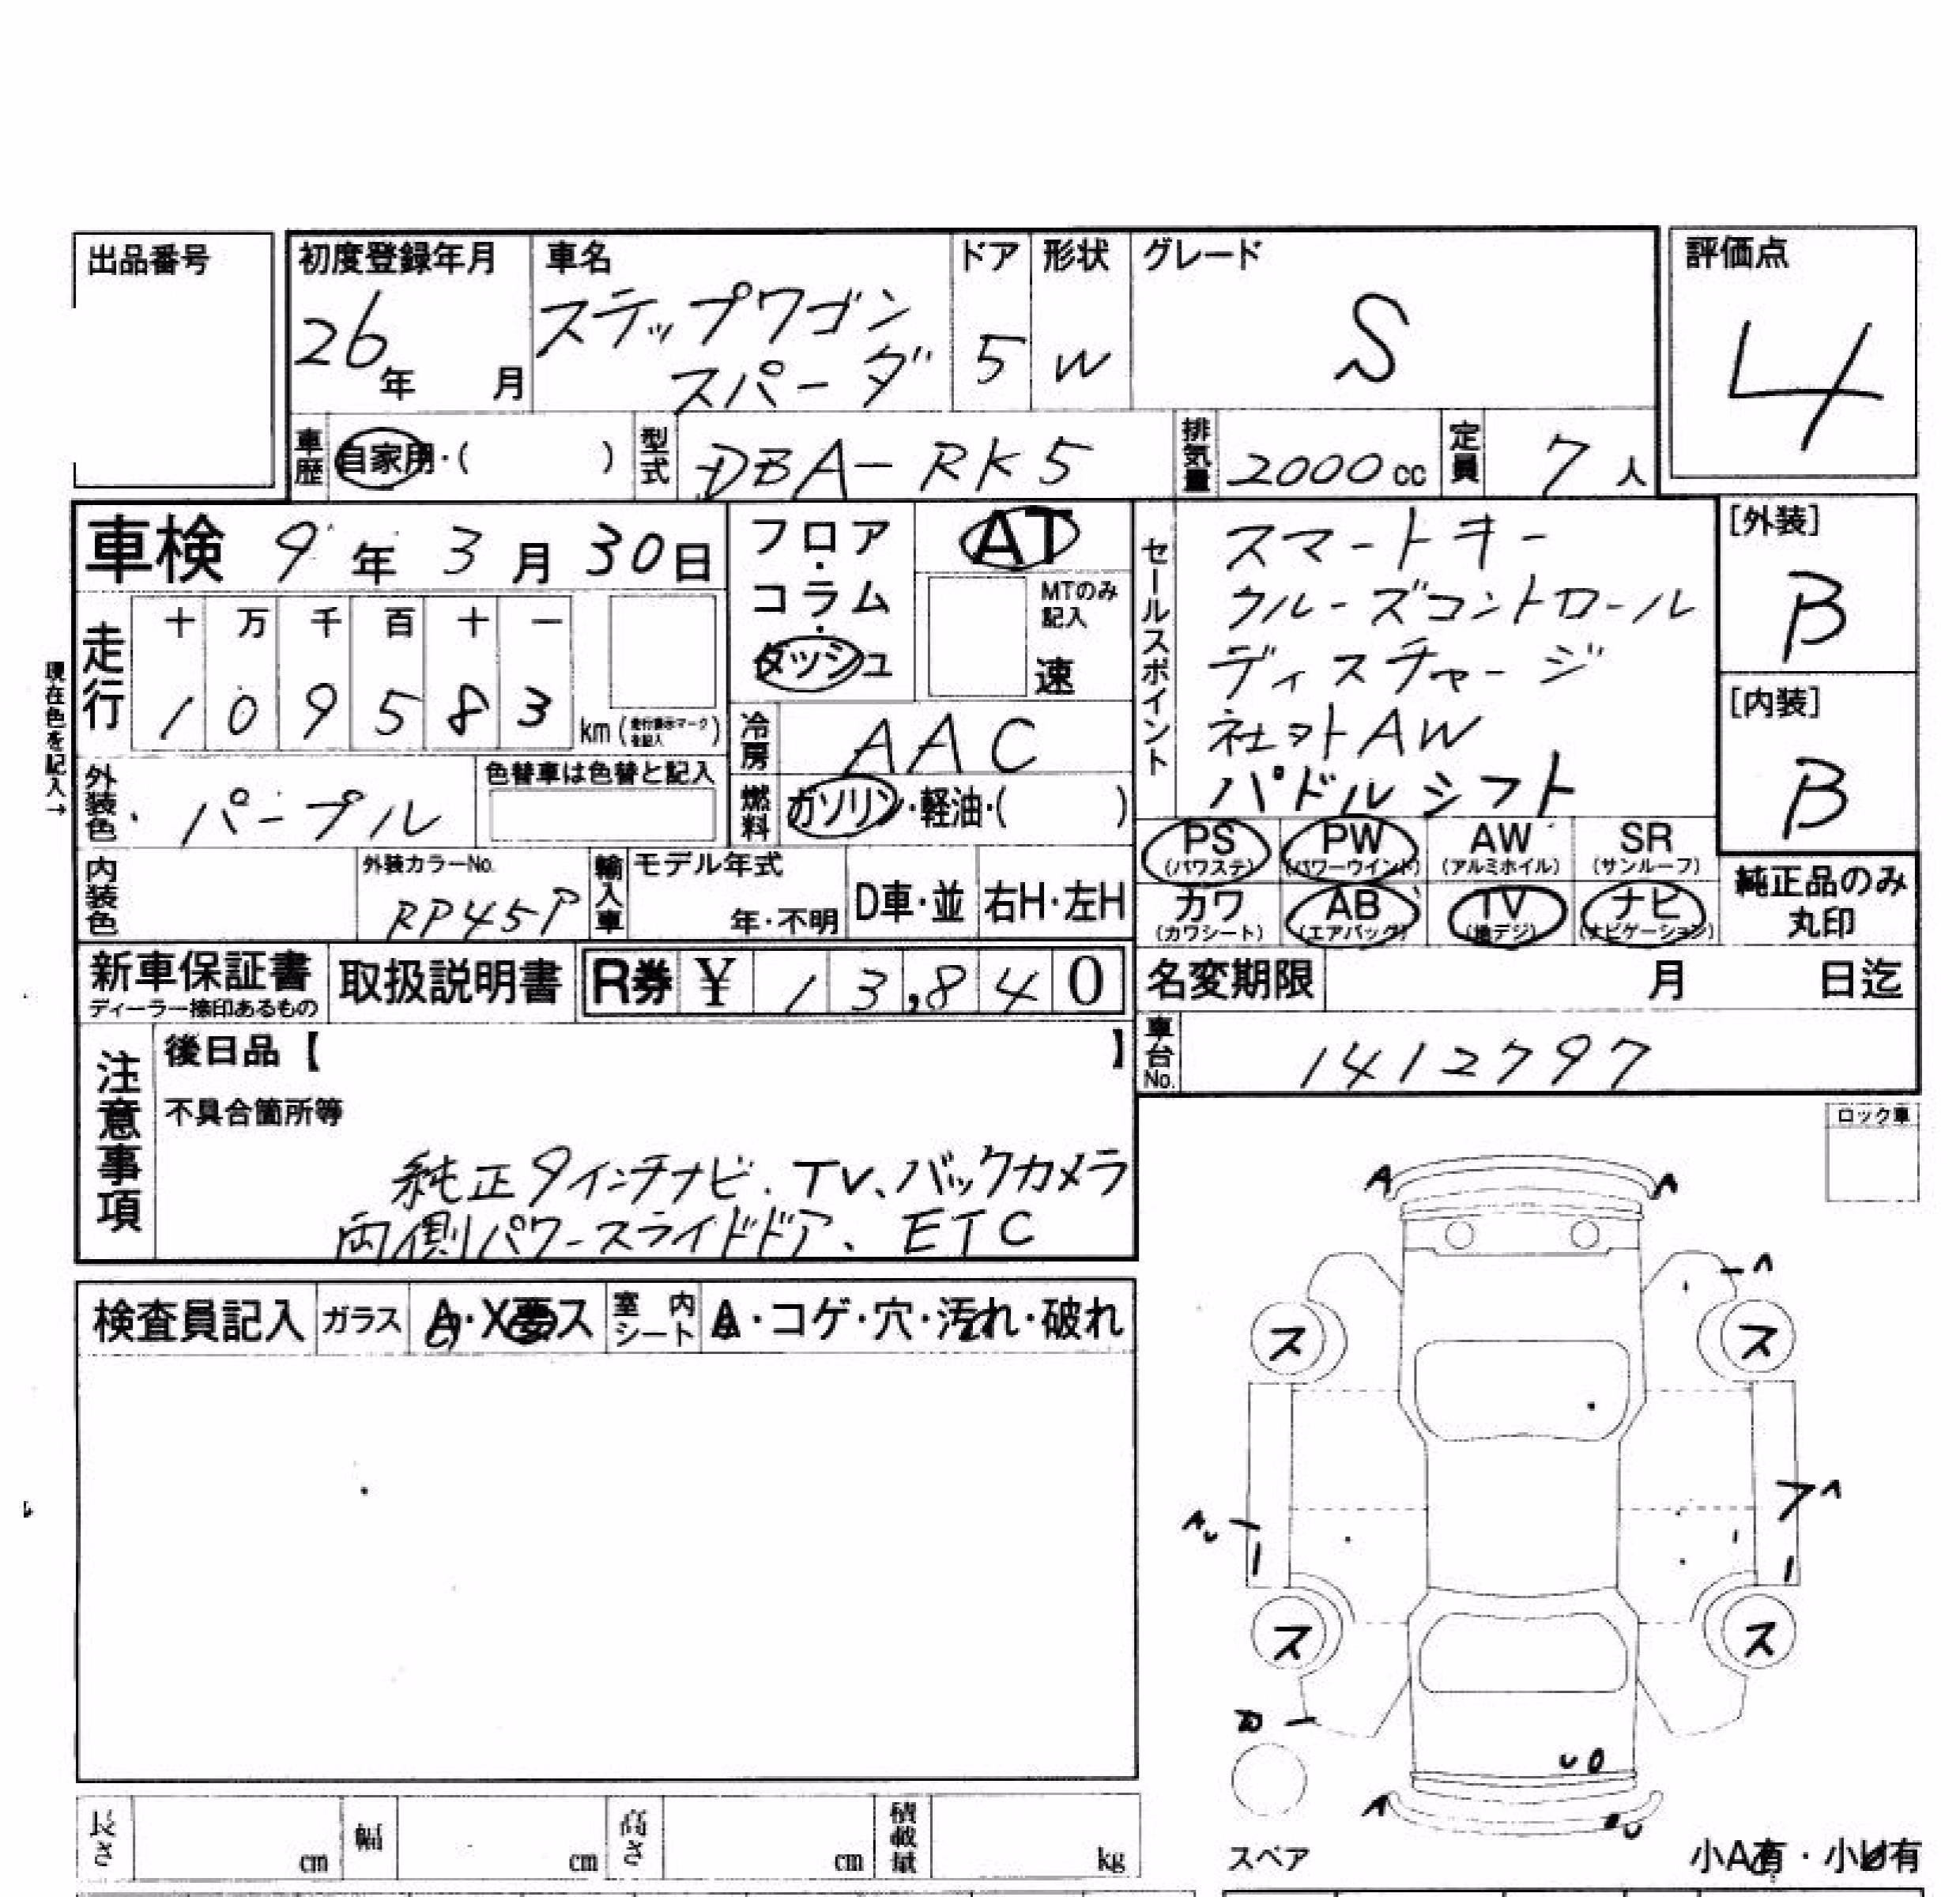 出品番号
初度登録年月
26年 月
車名
ステップワゴン
スパーダ
ドア
5
形状
W
グレード
S
評価点
4
車歴 自家用・( )
型式 DBA-RK5
排気量 2000cc
定員 7人
車検 9年3月30日
フロア・コラム・ダッシュ
AT
MTのみ記入
速
セールスポイント
スマートキー
クルーズコントロール
ディスチャージ
社外AW
パドルシフト
[外装]
B
[内装]
B
現在色を記入→
走行
十 万 千 百 十 一
1 0 9 5 8 3 km (走行表示マークを記入)
冷房 AAC
外装色 パープル
色替車は色替と記入
燃料 ガソリン・軽油・( )
PS (パワステ)
PW (パワーウインド)
AW (アルミホイル)
SR (サンルーフ)
カワ (カワシート)
AB (エアバック)
TV (地デジ)
ナビ (ナビゲーション)
純正品のみ
丸印
内装色
外装カラーNo.
RP45P
輸入車
モデル年式
年・不明
D車・並
右H・左H
新車保証書
ディーラー捺印あるもの
取扱説明書
R券 ¥ 13,840
名変期限 月 日迄
車台No. 1412797
注意事項
後日品【 】
不具合箇所等
純正9インチナビ.TV、バックカメラ
両側パワースライドドア、ETC
ロック車
検査員記入
ガラス A・X要ス
室内シート A・コゲ・穴・汚れ・破れ
A A
A
ス ス
A
AU
ス ス
U
A
U
スペア
小A有・小U有
長さ cm
幅 cm
高さ cm
積載量 kg